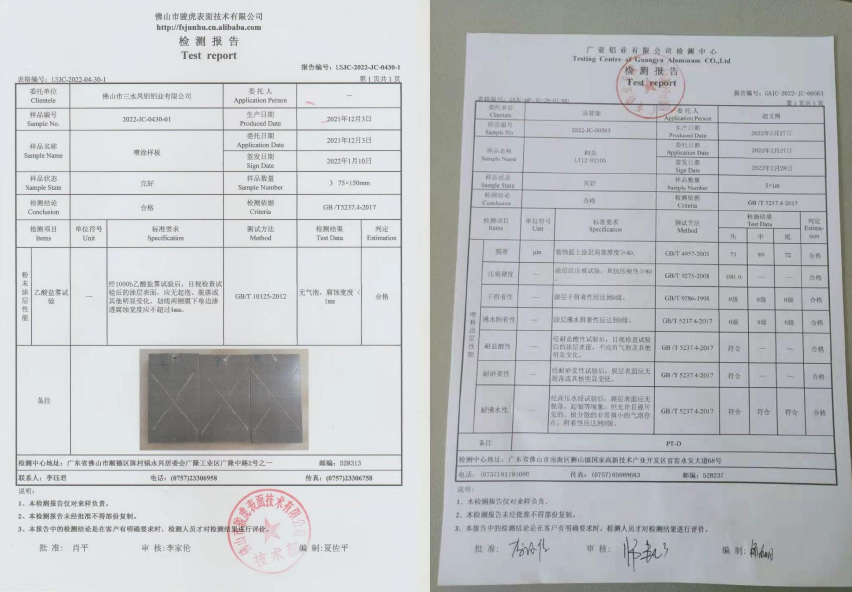 佛山市骏虎表面技术有限公司
http://fsjunhu.cn.alibaba.com
检 测 报 告
Test report
报告编号: LSJC-2022-JC-0430-1
表格编号: LSJC-2022-04-30-1 第 1 页共 1 页
委托单位 佛山市三水凤铝铝业有限公司 委 托 人 —
Clientele Application Person
样品编号 2022-JC-0430-01 生产日期 2021年12月3日
Sample No. Produced Date
样品名称 喷涂样板 委托日期 2021年12月3日
Sample Name Application Date
签发日期 2022年1月10日
Sign Date
样品状态 完好 样品数量 3 75×150mm
Sample State Sample Number
检测结论 合格 检测依据 GB /T5237.4-2017
Conclusion Criteria
检测项目 单位符号 标准要求 测试方法 检测结果 判定
Items Unit Specification Method Test Data Estimation
粉末涂层性能
乙酸盐雾试验 — 经1000h乙酸盐雾试验后，目视检查试
验后的涂层表面，应无起泡、脱落或
其他明显变化，划线两侧膜下单边渗
透腐蚀宽度应不超过4mm。
GB/T 10125-2012 无气泡，腐蚀宽度<
1mm 合格
备注
检测中心地址: 广东省佛山市顺德区陈村镇永兴居委会广隆工业区广隆中路2号之一 邮编: 528313
联系人: 李珏君 电话: (0757)23306958 传真: (0757)23306758
说明:
1、本检测报告仅对来样负责。
2、本检测报告未经批准不得部份复制。
3、本报告中的检测结论是在客户有明确要求时，检测人员才对检测结果进行评价。
批 准: 肖平 审 核: 李家伦 编 制: 夏佐平
佛山市骏虎表面技术有限公司
技术部
广亚铝业有限公司检测中心
Testing Centre of Guangya Aluminum CO.,Ltd
检 测 报 告
Test report
报告编号: GAJC-2022-JC-00563
第 1 页共 1 页
委托单位 委 托 人
Clientele Application Person
样品编号 2022-JC-00563 生产日期 2022年2月27日
Sample No Produced Date
样品名称 委托日期 2022年2月27日
Sample Name Application Date
签发日期 2022年2月28日
Sign Date
样品状态 完好 样品数量 3×1m
Sample State Sample Number
检测结论 合格 检测依据 GB /T 5237.4-2017
Conclusion Criteria
检测项目 单位符号 标准要求 测试方法 检测结果 判定
Items Unit Specification Method Test Data Estima-tion
头 中 尾
喷粉涂层性能
膜厚 μm 装饰面上涂层局部厚度≥40。 GB/T 4957-2003 71 72 合格
压痕硬度 — 涂层经压痕试验，其抗压痕性≥80。 GB/T 9275-2008 100.0 — — 合格
干附着性 — 涂层干附着性应达到0级。 GB/T 9286-1998 0级 0级 0级 合格
沸水附着性 — 涂层沸水附着性应达到0级。 GB/T 5237.4-2017 0级 0级 0级 合格
耐盐酸性 — 经耐盐酸性试验后，目视检查试验
后的涂层表面，不应有气泡及其他
明显变化。 GB/T 5237.4-2017 符合 — — 合格
耐砂浆性 — 经耐砂浆性试验后，膜层表面应无
脱落或其他明显变化。 GB/T 5237.4-2017 符合 — — 合格
耐沸水性 — 经高压水浸试验后，膜层表面应无
脱落、起皱等现象，但允许目视可
见的、极分散的非常微小的气泡存
在，附着性应达到0级。 GB/T 5237.4-2017 符合 符合 符合 合格
备注 PT-D
检测中心地址: 广东省佛山市南海区狮山镇国家高新技术产业开发区官窑永安大道68号
电话: 传真: (0757)85889683 邮编: 528237
说明:
1、本检测报告仅对来样负责。
2、本检测报告未经批准不得部份复制。
3、本报告中的检测结论是在客户有明确要求时，检测人员才对检测结果进行评价。
批 准: 审 核: 编 制: